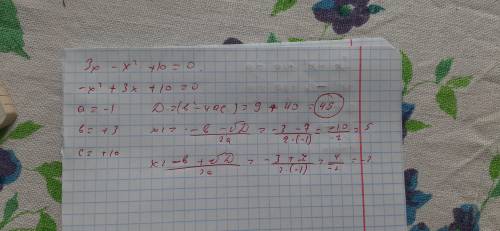 3x - x² + 10 = 0
-x² + 3x + 10 = 0
a = -1 D = (b² - 4ac) = 9 + 40 = 49
b = +3 x1 = -b - √D / 2a = -3 - 7 / 2·(-1) = -10 / -2 = 5
c = +10
x2 -b + √D / 2a = -3 + 7 / 2·(-1) = 4 / -2 = -2